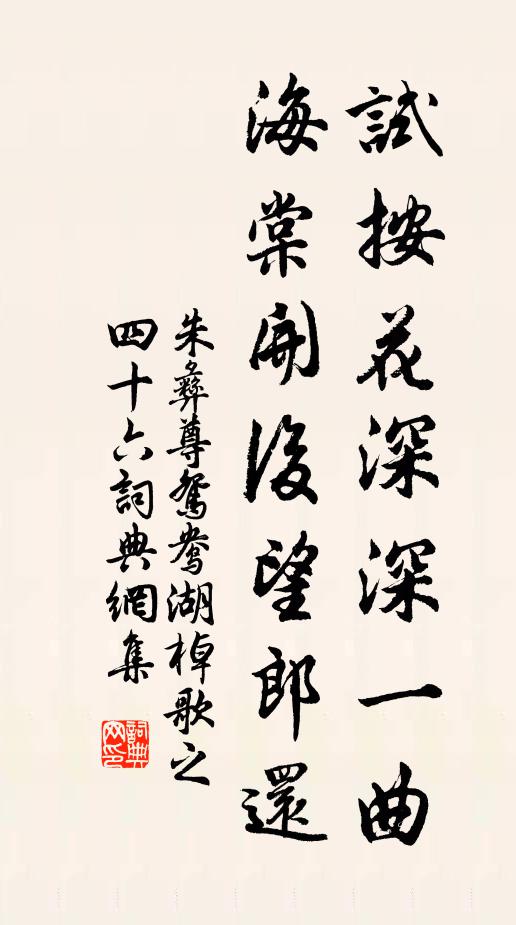 試按花深深一曲
海棠開後望郎還
朱彝尊鴛鴦湖棹歌之
四十六詞典網集
詞典網印